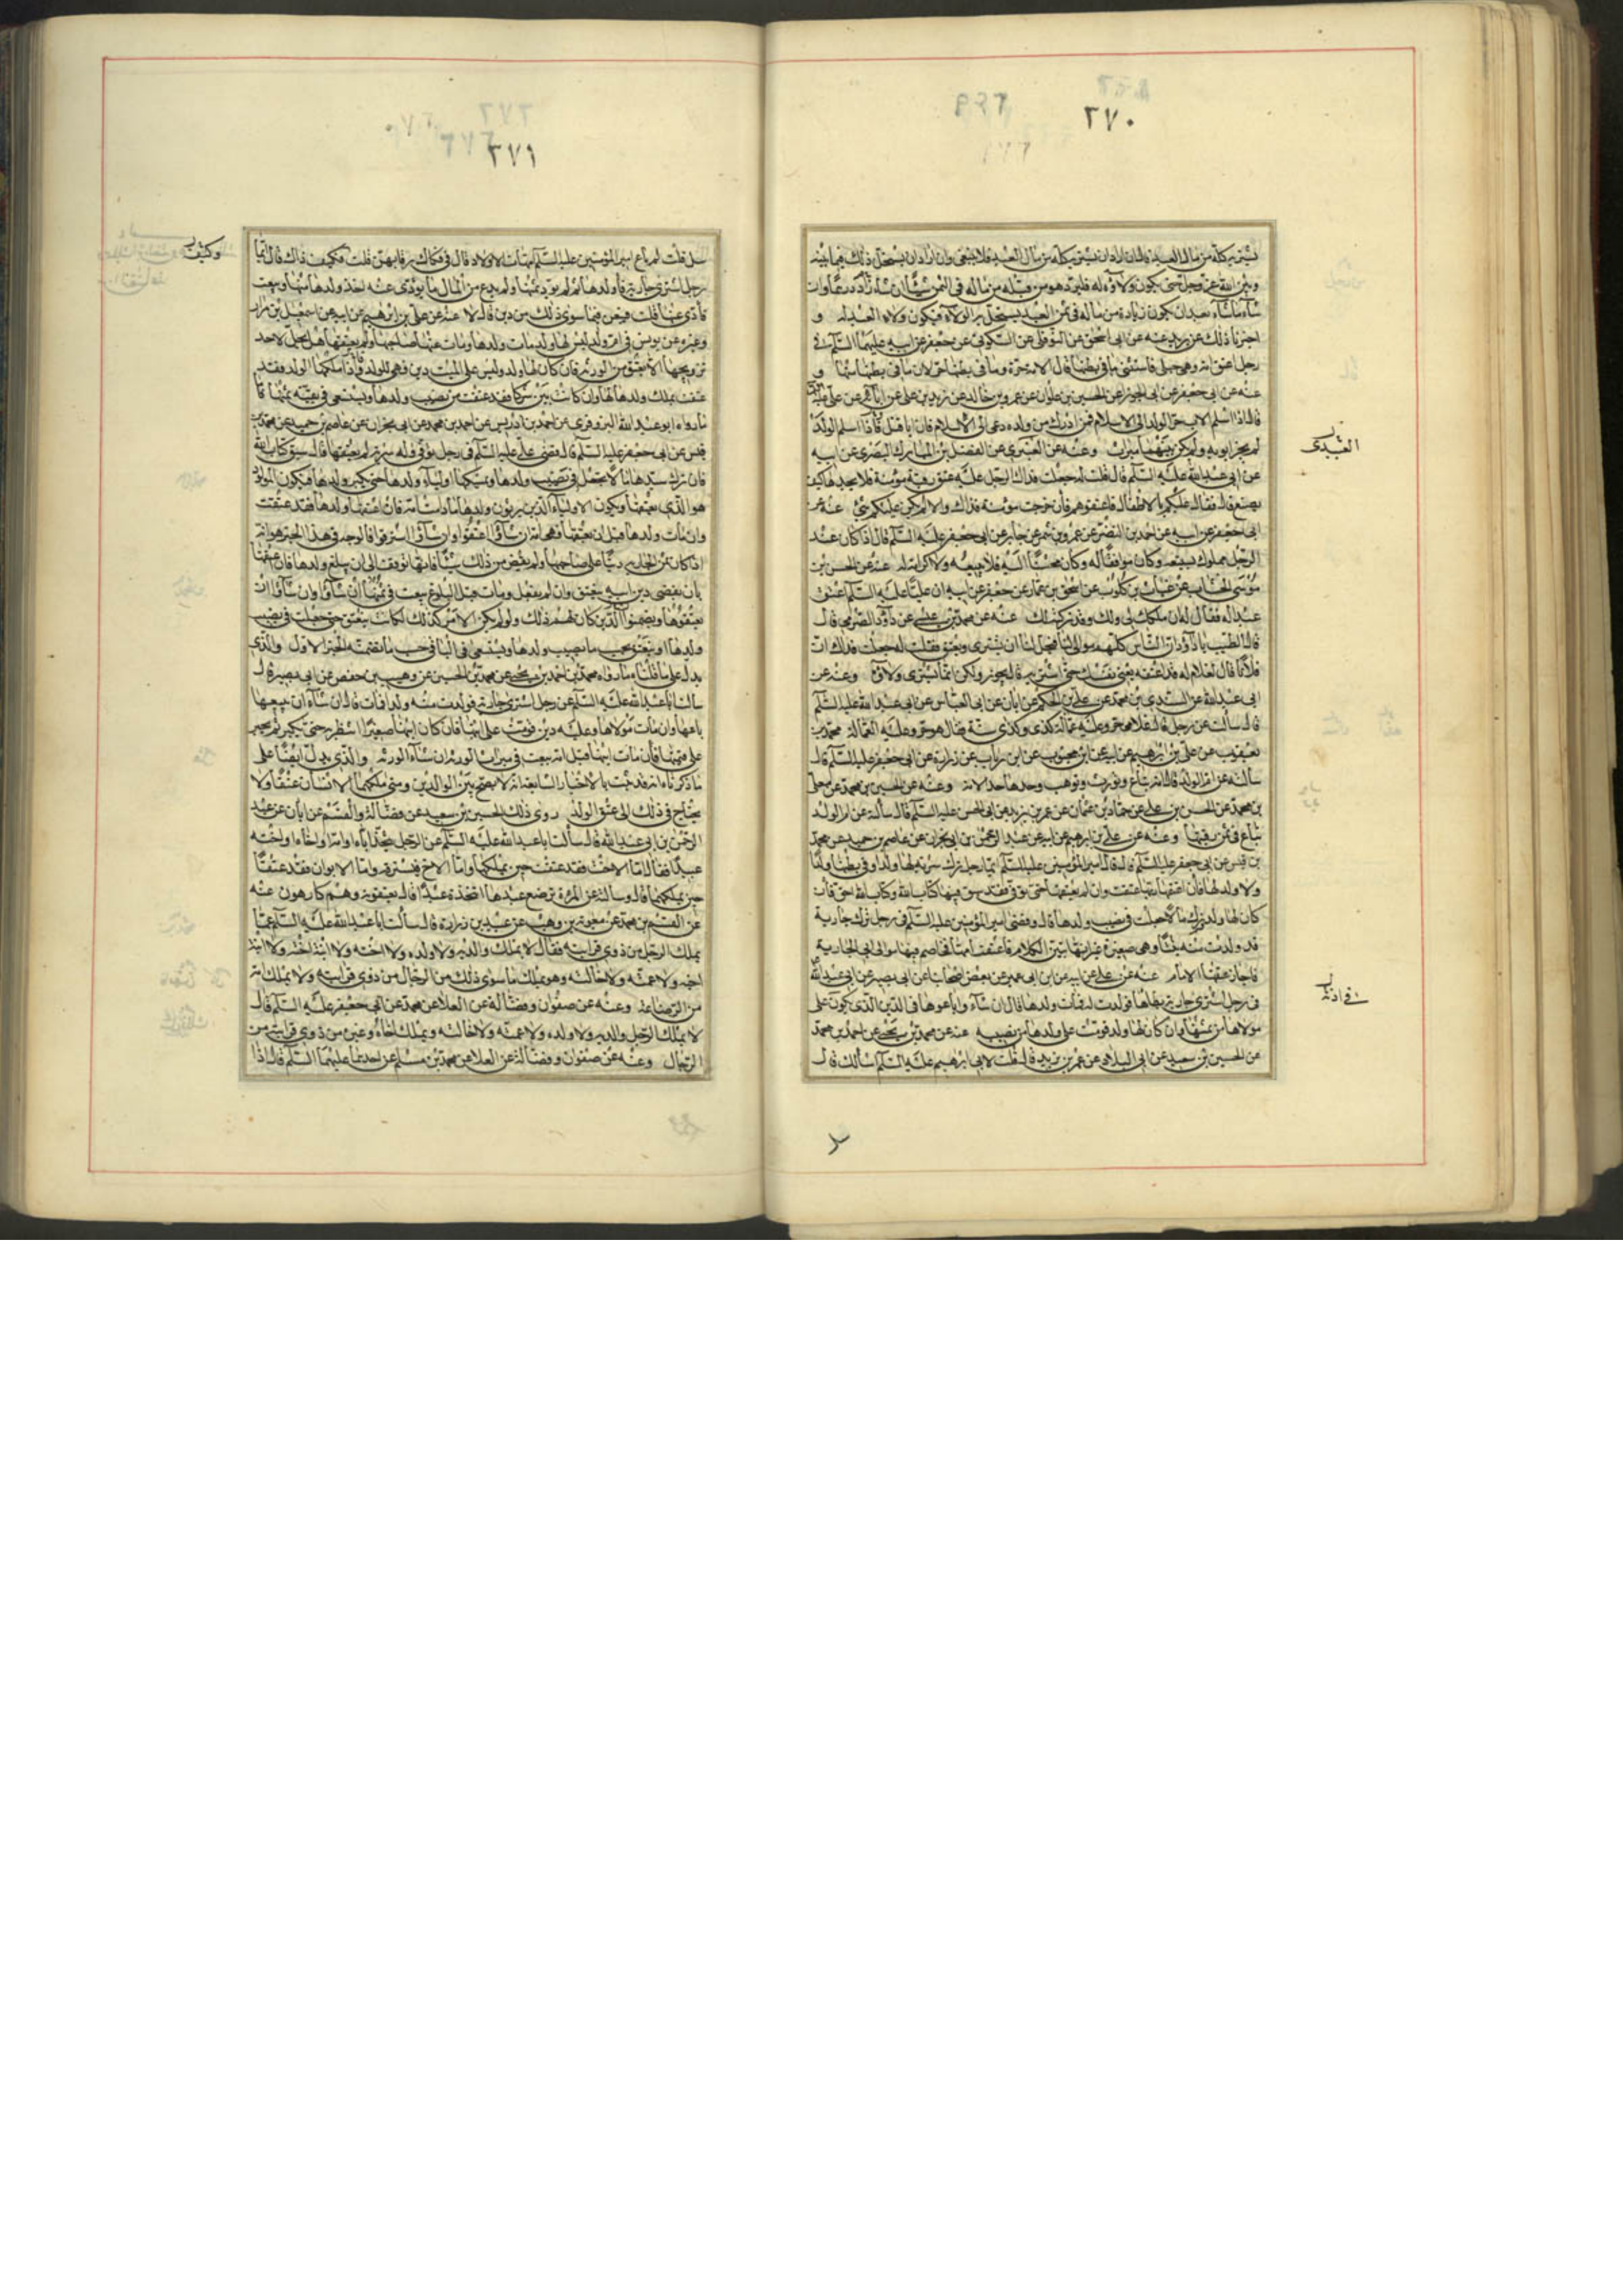 ٢٧٠
يشتريه كله من مال العبد قال ان اراد ان يشتريه كله من مال العبد فلا ينبغى وان اراد ان يستحل ذلك فيما بينه
وبين الله عز وجل حتى يكون ولاؤه له فليزدهو من قبله من ماله فى الثمن شيئا ان شاء زاده درهما وان
شاء ما شاء بعد ان يكون زيادة من ماله فى ثمن العبد يستحل به الولاء فيكون ولاء العبد له و
اخبرنا ذلك عن بريد عنه عن ابى اسحق عن النوفلى عن السكونى عن جعفر عن ابيه عليهما السلم فى
رجل اعتق امة وهى حبلى فاستثنى ما فى بطنها قال الامة حرة وما فى بطنها حر لان ما فى بطنها منها و
عنه عن ابى جعفر عن ابى الجوزا عن الحسين بن علوان عن عمرو بن خالد عن زيد بن على عن ابائه عن على عليه السلم
قال اذا اسلم الاب جر الولد الى الاسلام فمن ادرك من ولده دعى الى الاسلام فان ابا قتل فاذا اسلم الولد
لم يجر ابويه ولم يكن بينهما ميراث وعنه عن العنبرى عن الفضل بن المبارك البصرى عن ابيه
عن ابى عبد الله عليه السلم قال قلت له جعلت فداك الرجل عليه عتق رقبة مؤمنة فلا يجدها كيف
يصنع قال فقال عليكم بالاطفال فاعتقوهم فان خرجت مؤمنة فذاك والا لم يكن عليكم شئ عنه عن
ابى جعفر عن ابيه عن احمد بن النضر عن عمرو بن شمر عن جابر عن ابى جعفر عليه السلم قال اذا كان عند
الرجل مملوك يبيعه وكان موافقا له وكان محسنا اليه فلا يبيعه ولا كرامة له عنه عن الحسن بن
موسى الخشاب عن غياث بن كلوب عن اسحق بن عمار عن جعفر عن ابيه ان عليا عليه السلم اعتق
عبدا له فقال له ان ملكك لى ولك وقد تركته لك عنه عن محمد بن عيسى عن داود الصرمى قال
قال الطيب يا داود ان الناس كلهم موالى لنا فيحل لنا ان نشترى ونعتق فقلت له جعلت فداك ان
فلانا قال لغلام له قد اعتقه بعنى نفسك حتى اشتريه قال يجوز ولكن انما يشترى ولاؤه وعنه عن
ابى عبد الله عن السندى بن محمد عن على بن الحكم عن ابان عن ابى العباس عن ابى عبد الله عليه السلم
قال سالت عن رجل قال غلامى حر وعليه عمالة كذى وكذى سنة فقال هو حر وعليه العمالة محمد بن
يعقوب عن على بن ابراهيم عن ابيه عن ابن محبوب عن ابن رئاب عن زرارة عن ابى جعفر عليه السلم قال
سالته عن ام الولد قال امة تباع وتورث وتوهب وحدها حد الامة وعنه عن الحسين بن محمد عن معلى
بن محمد عن الحسن بن على عن حماد بن عثمان عن عمر بن يزيد عن ابى الحسن عليه السلم قال سالته عن ام الولد
تباع فى ثمن رقبتها وعنه عن على بن ابراهيم عن ابيه عن عبد الرحمن بن ابى نجران عن عاصم بن حميد عن محمد
بن قيس عن ابى جعفر عليه السلم قال قال امير المؤمنين عليه السلم ايما رجل ترك سرية لها ولد او فى بطنها ولد
ولا ولد لها فان اعتقها ربها عتقت وان لم يعتقها حتى توفى فقد سبق فيها كتاب الله وكتاب الله احق فان
كان لها ولد وترك مالا جعلت فى نصيب ولدها قال وقضى امير المؤمنين عليه السلم فى رجل ترك جارية
قد ولدت منه بنتا وهى صغيرة غير انها تبين الكلام فاعتقت امها فخاصم فيها موالى ابى الجارية
فاجاز عتقها الامام عنه عن على عن ابيه عن ابن ابى عمير عن بعض اصحابنا عن ابى بصير عن ابى عبد الله
فى رجل اشترى جارية يطاها فولدت له فمات ولدها قال ان شاء وا باعوها فى الدين الذى يكون على
مولاها من ثمنها وان كان لها ولد قومت على ولدها من نصيبه عنه عن محمد بن يحيى عن احمد بن محمد
عن الحسين بن سعيد عن ابى البلاد عن عمر بن يزيد قال قلت لابى ابراهيم عليه السلم اسالك قال
العبيدى
سل
٢٧١
سل قلت لم باع امير المؤمنين عليه السلم امهات الاولاد قال فى فكاك رقابهن قلت فكيف ذاك قال ايما
رجل اشترى جارية فاولدها ثم لم يؤد ثمنها ولم يدع من المال ما يؤدى عنه اخذ ولدها منها وبيعت
فادى عنها قلت فيبعن فيما سوى ذلك من دين قال لا عنه عن على بن ابراهيم عن ابيه عن اسمعيل بن مرار
وغيره عن يونس فى ام ولد ليس لها ولد مات ولدها ومات عنها صاحبها ولم يعتقها هل يحل لاحد
تزويجها قال لا الا بعتق من الورثه فان كان لها ولد وليس على الميت دين فهى للولد فاذا ملكها الولد فقد
عتقت بملك ولدها لها وان كانت بين شركاء فقد عتقت من نصيب ولدها وتستسعى فى بقيه ثمنها فا
ما رواه ابو عبد الله البزوفرى عن احمد بن ادريس عن احمد بن محمد عن ابى نجران عن عاصم بن حميد عن محمد بن
قيس عن ابى جعفر عليه السلم قال قضى على عليه السلم فى رجل توفى وله سرية لم يعتقها قال سبق كتاب الله
فان ترك سيدها مالا تجعل فى نصيب ولدها ويمسكها اولياء ولدها حتى يكبر ولدها فيكون المولود
هو الذى يعتقها ويكون الاولياء الذين يرثون ولدها ما دامت امة فان اعتقها ولدها فقد عتقت
وان مات ولدها قبل ان يعتقها فهى امة ان شاؤا اعتقوا وان شاؤا استرقوا فالوجه فى هذا الخبر هو انه
اذا كان ثمن الجارية دينا على صاحبها ولم يقض من ذلك شيئا فانها توقف الى ان يبلغ ولدها فان اعتقها
بان يقضى دين ابيه ينعتق وان لم يفعل ومات قبل البلوغ بيعت فى ثمنها ان شاؤا وان شاؤا ان
يعتقوها ويضمنوا الدين كان لهم ذلك ولو لم يكن الامر كذلك لكانت ينعتق حين جعلت فى نصيب
ولدها او ينعتق بحسب ما نصيب ولدها ويستسعى فى الباقى حسب ما تضمنه الخبر الاول والذى
يدل على ما قلناه ما رواه محمد بن احمد بن يحيى عن محمد بن الحسين عن وهيب بن حفص عن ابى بصير قال
سالت ابا عبد الله عليه السلم عن رجل اشترى جارية فولدت منه ولدا فمات قال ان شاء ان يبيعها
باعها وان مات مولاها وعليه دين قومت على ابنها فان كان ابنها صغيرا انتظر به حتى يكبر ثم يجبر
على قيمتها فان مات ابنها قبل امه بيعت فى ميراث الورثة ان شاء الورثه والذى يدل ايضا على
ما ذكرناه انه قد ثبت بالاخبار السابقة انه لا يصح بيع الوالدين ومتى ملكهما الانسان عتقا ولا
يحتاج فى ذلك الى عتق الولد روى ذلك الحسين بن سعيد عن فضالة والقسم عن ابان عن عبد
الرحمن بن ابى عبد الله قال سالت ابا عبد الله عليه السلم عن الرجل يتخذ اباه او امه او اخاه او اخته
عبيدا فقال اما الاخت فقد عتقت حين يملكها واما الاخ فيسترقه واما الابوان فقد عتقا
حين يملكهما قال وسالته عن المرءة ترضع عبدها اتتخذه عبدا قال يعتقونه وهم كارهون عنه
عن القسم بن محمد عن معوية بن وهب عن عبيد بن زرارة قال سالت ابا عبد الله عليه السلم عما
يملك الرجل من ذوى قرابته فقال لا يملك والديه ولا ولده ولا اخته ولا ابنة اخته ولا ابنة
اخيه ولا عمته ولا خالته وهو يملك ما سوى ذلك من الرجال من ذوى قرابته ولا يملك امه
من الرضاعة وعنه عن صفوان وفضالة عن العلا عن محمد عن ابى جعفر عليه السلم قال
لا يملك الرجل والديه ولا ولده ولا عمته ولا خالته ويملك اخاه وغيره من ذوى قرابته من
الرجال وعنه عن صفوان وفضالة عن العلا عن محمد بن مسلم عن احدهما عليهما السلم قال اذا
وكيف